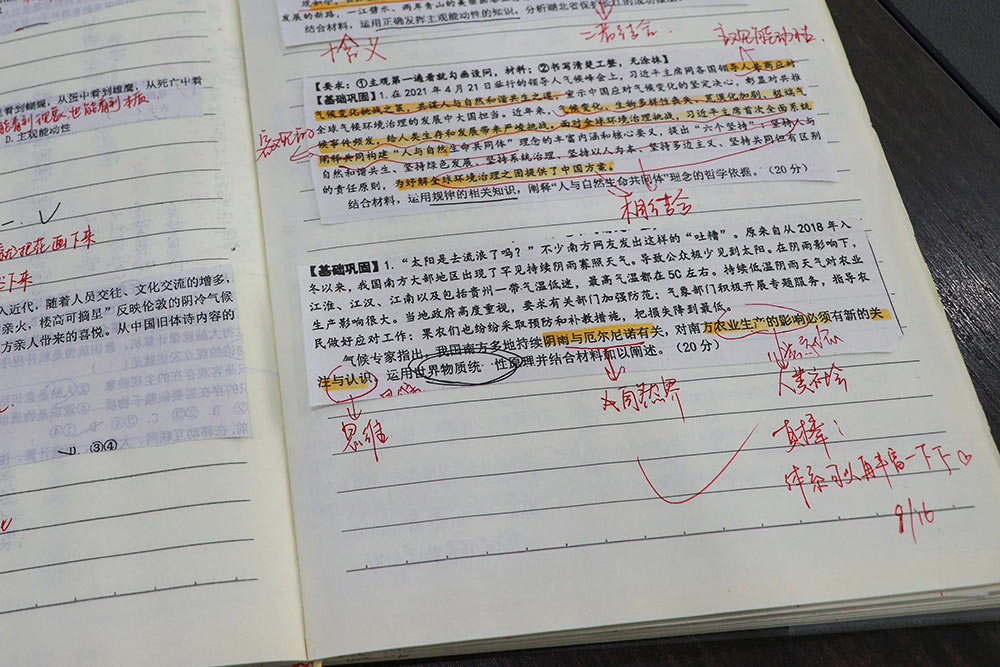 发展的新路，一江碧水、两岸青山的美丽画
结合材料，运用正确发挥主观能动性的知识，分析湖北省保护长江的成功做法。
+含义
二者结合
主观能动性
【要求：①主观第一遍看就勾画设问，材料；②书写清楚工整，无涂抹】
【基础巩固】1.在 2021 年 4 月 21 日举行的领导人气候峰会上，习近平主席同各国领导人共商应对
气候变化挑战之策，共谋人与自然和谐共生之道，宣示中国应对气候变化的坚定决心，彰显对共推
全球气候环境治理的发展中大国担当。近年来，气候变化、生物多样性丧失、荒漠化加剧、极端气
候事件频发，给人类生存和发展带来严峻挑战。面对全球环境治理挑战，习近平主席首次全面系统
阐释共同构建“人与自然生命共同体”理念的丰富内涵和核心要义，提出“六个坚持”：坚持人与
自然和谐共生、坚持绿色发展、坚持系统治理、坚持以人为本、坚持多边主义、坚持共同但有区别
的责任原则，为纾解全球环境治理之困提供了中国方案。
结合材料，运用规律的相关知识，阐释“人与自然生命共同体”理念的哲学依据。（20 分）
相结合
【基础巩固】1.“太阳是去流浪了吗？”不少南方网友发出这样的“吐槽”。原来自从 2018 年入
冬以来，我国南方大部地区出现了罕见持续阴雨寡照天气。导致公众极少见到太阳。在阴雨影响下，
江淮、江汉、江南以及包括贵州一带气温低迷，最高气温都在5C 左右。持续低温阴雨天气对农业
生产影响很大。当地政府高度重视，要求有关部门加强防范；气象部门积极开展专题服务，指导农
民做好应对工作；果农们也纷纷采取预防和补救措施，把损失降到最低。
气候专家指出，我国南方多地持续阴雨与厄尔尼诺有关，对南方农业生产的影响必须有新的关
注与认识。运用世界物质统一性原理并结合材料加以阐述。（20 分）
思维
自然界
人类社会
真棒！
体系可以再丰富一下下♡
9/16
看到蝴蝶，从蛋中看到雄鹰，从死亡中看
D.主观能动性
画下来
下来
入近代，随着人员交往、文化交流的增多，
亲火，楼高可摘星”反映伦敦的阴冷气候
方亲人带来的喜悦。从中国旧体诗内容的
D. ③④